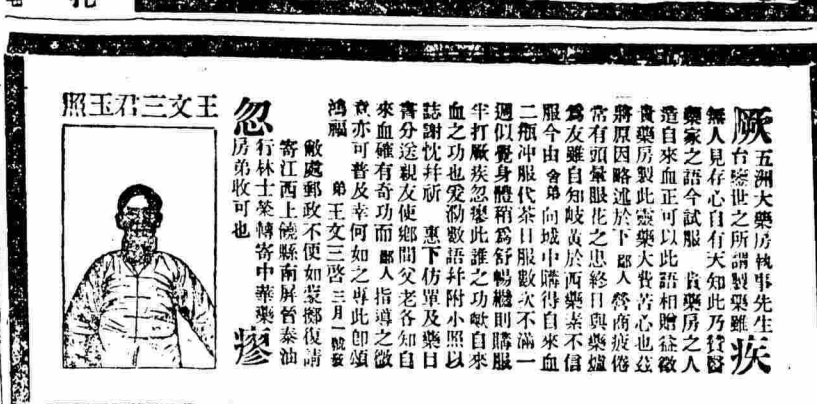 厥疾
五洲大藥房執事先生
台鑒世之所謂製藥雖
無人見存心自有天知此乃贊醫
藥家之語今試服 貴藥房之人
造自來血正可以此語相贈益徵
貴藥房製此靈藥大費苦心也茲
將原因略述於下 鄙人營商疲倦
常有頭暈眼花之患終日與藥爐
爲友雖自知岐黃於西藥素不信
服今由舍弟向城中購得自來血
二瓶冲服代茶日服數次不滿一
週似覺身體稍爲舒暢繼則購服
半打厥疾忽瘳此誰之功歟自來
血之功也爰泐數語幷附小照以
誌謝忱幷祈 惠下仿單及藥日
書分送親友使鄉間父老各知自
來血確有奇功而鄙人指導之微
意亦可普及幸何如之專此卽頌
鴻福 弟王文三啓 三月一號發
敝處郵政不便如蒙擲復請
寄江西上饒縣南屏晉泰油
行林士榮轉寄中華藥
房弟收可也
忽瘳
王文三君玉照